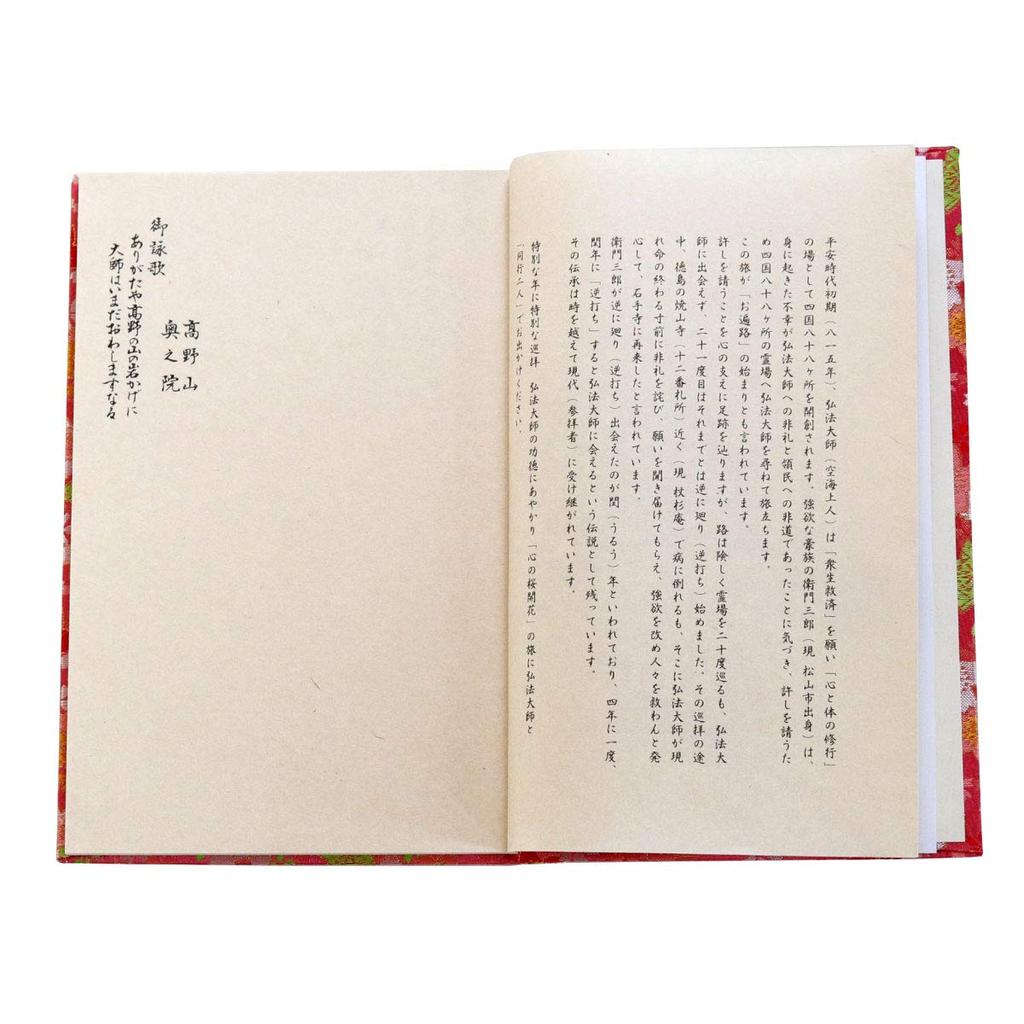 平安時代初期（八一五年）、弘法大師（空海上人）は「衆生救済」を願い「心と体の修行」
の場として四国八十八ヶ所を開創されます。強欲な豪族の衛門三郎（現 松山市出身）は、
身に起きた不幸が弘法大師への非礼と領民への非道であったことに気づき、許しを請うた
め四国八十八ヶ所の霊場へ弘法大師を尋ねて旅立ちます。
この旅が「お遍路」の始まりとも言われています。
許しを請うことを心の支えに足跡を辿りますが、路は険しく霊場を二十度巡るも、弘法大
師に出会えず、二十一度目はそれまでとは逆に廻り（逆打ち）始めました。その巡拝の途
中、徳島の焼山寺（十二番札所）近く（現 杖杉庵）で病に倒れるも、そこに弘法大師が現
れ命の終わる寸前に非礼を詫び、願いを聞き届けてもらえ、強欲を改め人々を救わんと発
心して、石手寺に再来したと言われています。
衛門三郎が逆に廻り（逆打ち）出会えたのが閏（うるう）年といわれており、四年に一度、
閏年に「逆打ち」すると弘法大師に会えるという伝説として残っています。
その伝承は時を越えて現代（参拝者）に受け継がれています。
特別な年に特別な巡拝 弘法大師の功徳にあやかり「心の桜開花」の旅に弘法大師と
「同行二人」でお出かけください。
高野山
奥之院
御詠歌
ありがたや高野の山の岩かげに
大師はいまだおわしますなる